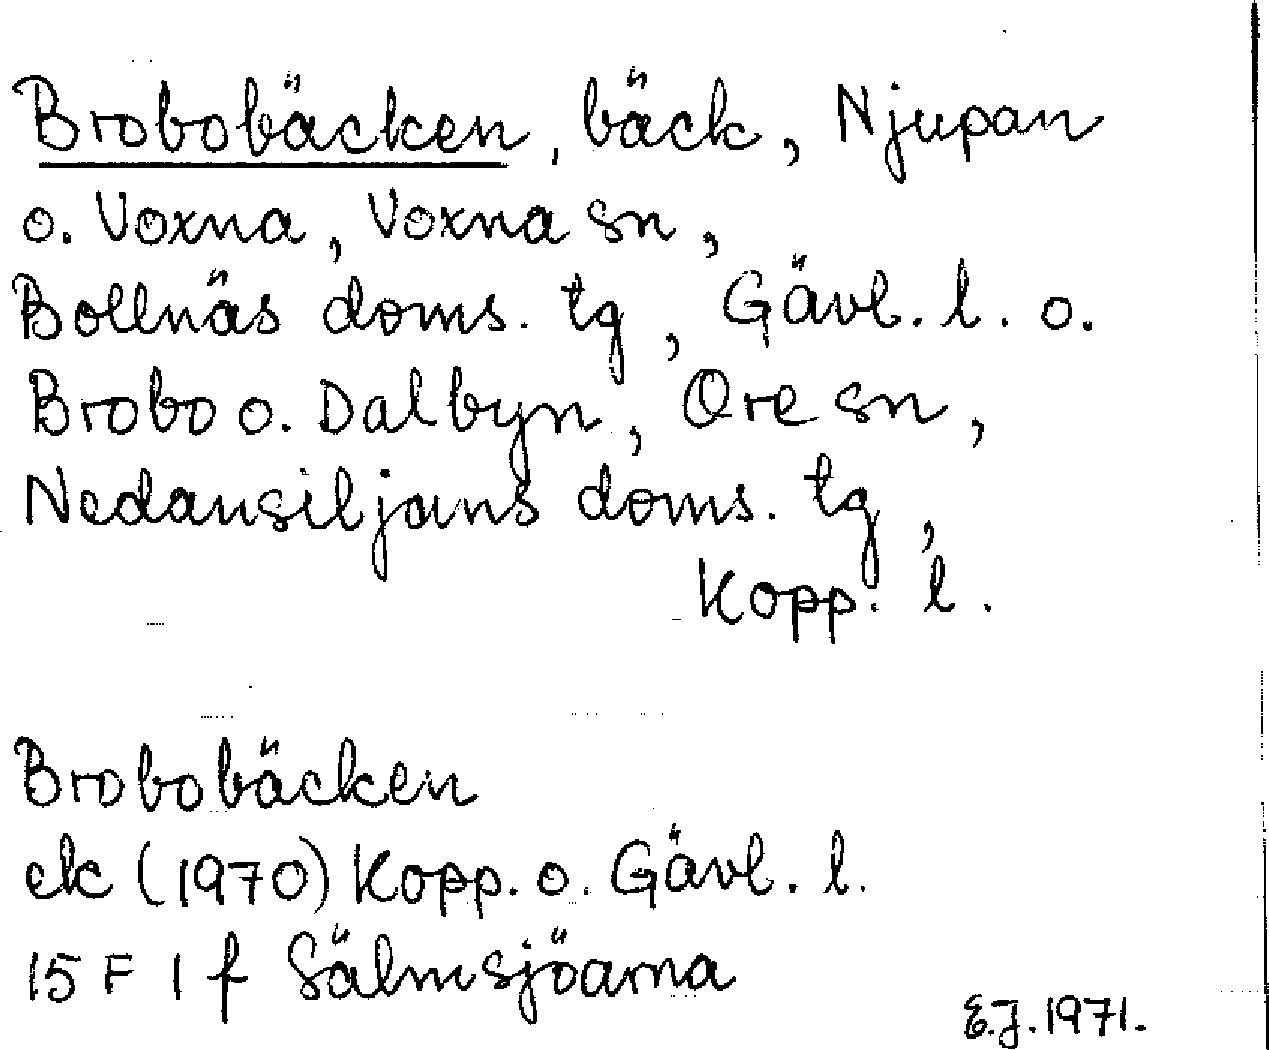 Brobobäcken, bäck, Njupan
o. Voxna, Voxna sn,
Bollnäs doms. tg, Gävl. l. o.
Brobo o. Dalbyn, Ore sn,
Nedansiljans doms. tg,
Kopp. l.
Brobobäcken
ek (1970) Kopp. o. Gävl. l.
15 F 1 f Sälmsjöarna
E.J. 1971.